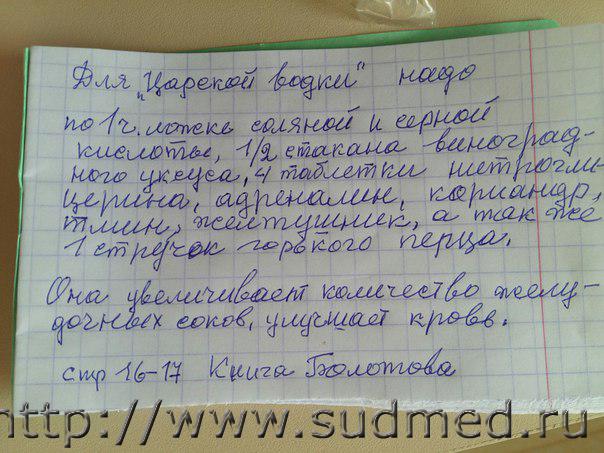 Для "Царской водки" надо
по 1 ч. ложке соляной и серной
кислоты, 1/2 стакана виноград-
ного уксуса, 4 таблетки нитрогли-
церина, адреналин, кориандр,
тмин, желтушник, а так же
1 стручок горького перца.
Она увеличивает количество желу-
дочных соков, улучшает кровь.
стр 16-17 Книга Болотова
http://www.sudmed.ru